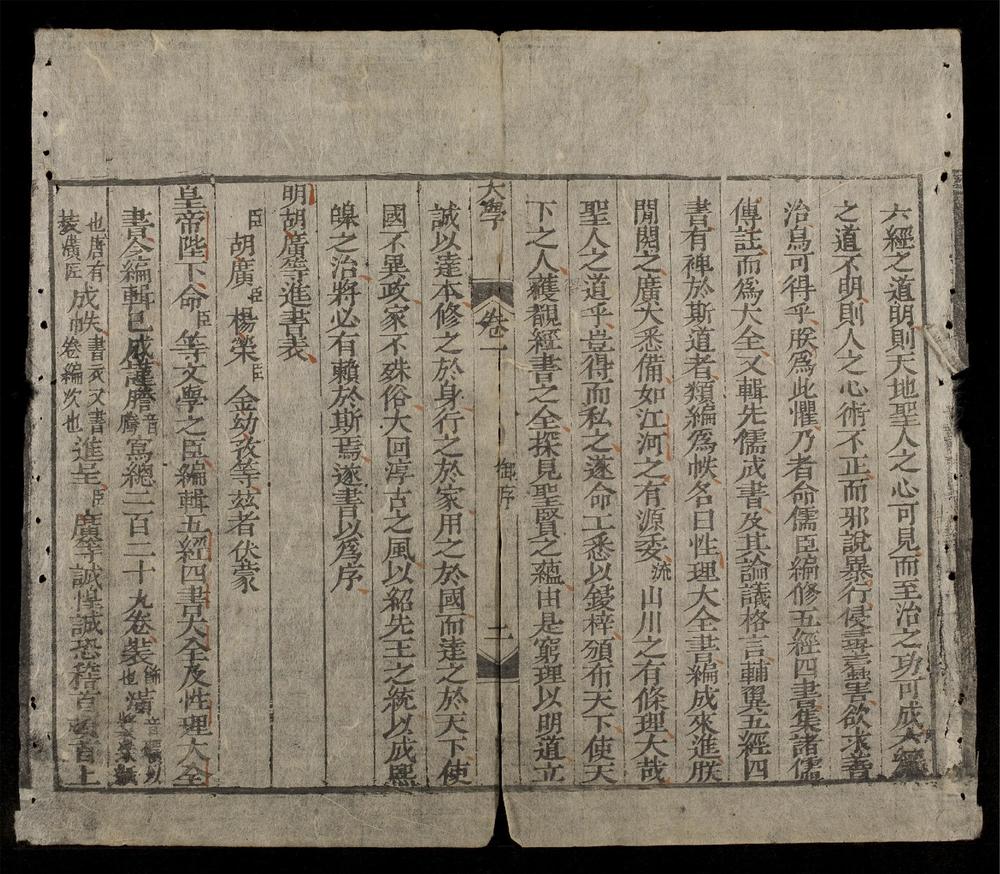 六經之道明則天地聖人之心可見而至治之功可成六經
之道不明則人之心術不正而邪說暴行侵尋蠹害欲求善
治烏可得乎朕爲此懼乃者命儒臣編修五經四書集諸儒
傳註而爲大全又輯先儒成書及其論議格言輔翼五經四
書有裨於斯道者類編爲帙名曰性理大全書編成來進朕
閒閱之廣大悉備如江河之有源委流山川之有條理大哉
聖人之道乎豈得而私之遂命工悉以鋟梓頒布天下使天
下之人獲覩經書之全探見聖賢之蘊由是窮理以明道立
大學 卷一 御序 二
誠以達本修之於身行之於家用之於國而達之於天下使
國不異政家不殊俗大回淳古之風以紹先王之統以成熙
皥之治將必有賴於斯焉遂書以爲序
明胡廣等進書表
臣胡廣臣楊榮臣金幼孜等兹者伏蒙
皇帝陛下命臣等文學之臣編輯五經四書大全及性理大全
書今編輯已成謹謄音騰寫總二百二十九卷裝飾也潢音
也唐有裝潢匠成帙書衣又書卷編次也進呈臣廣等誠惶誠恐稽首頓首上